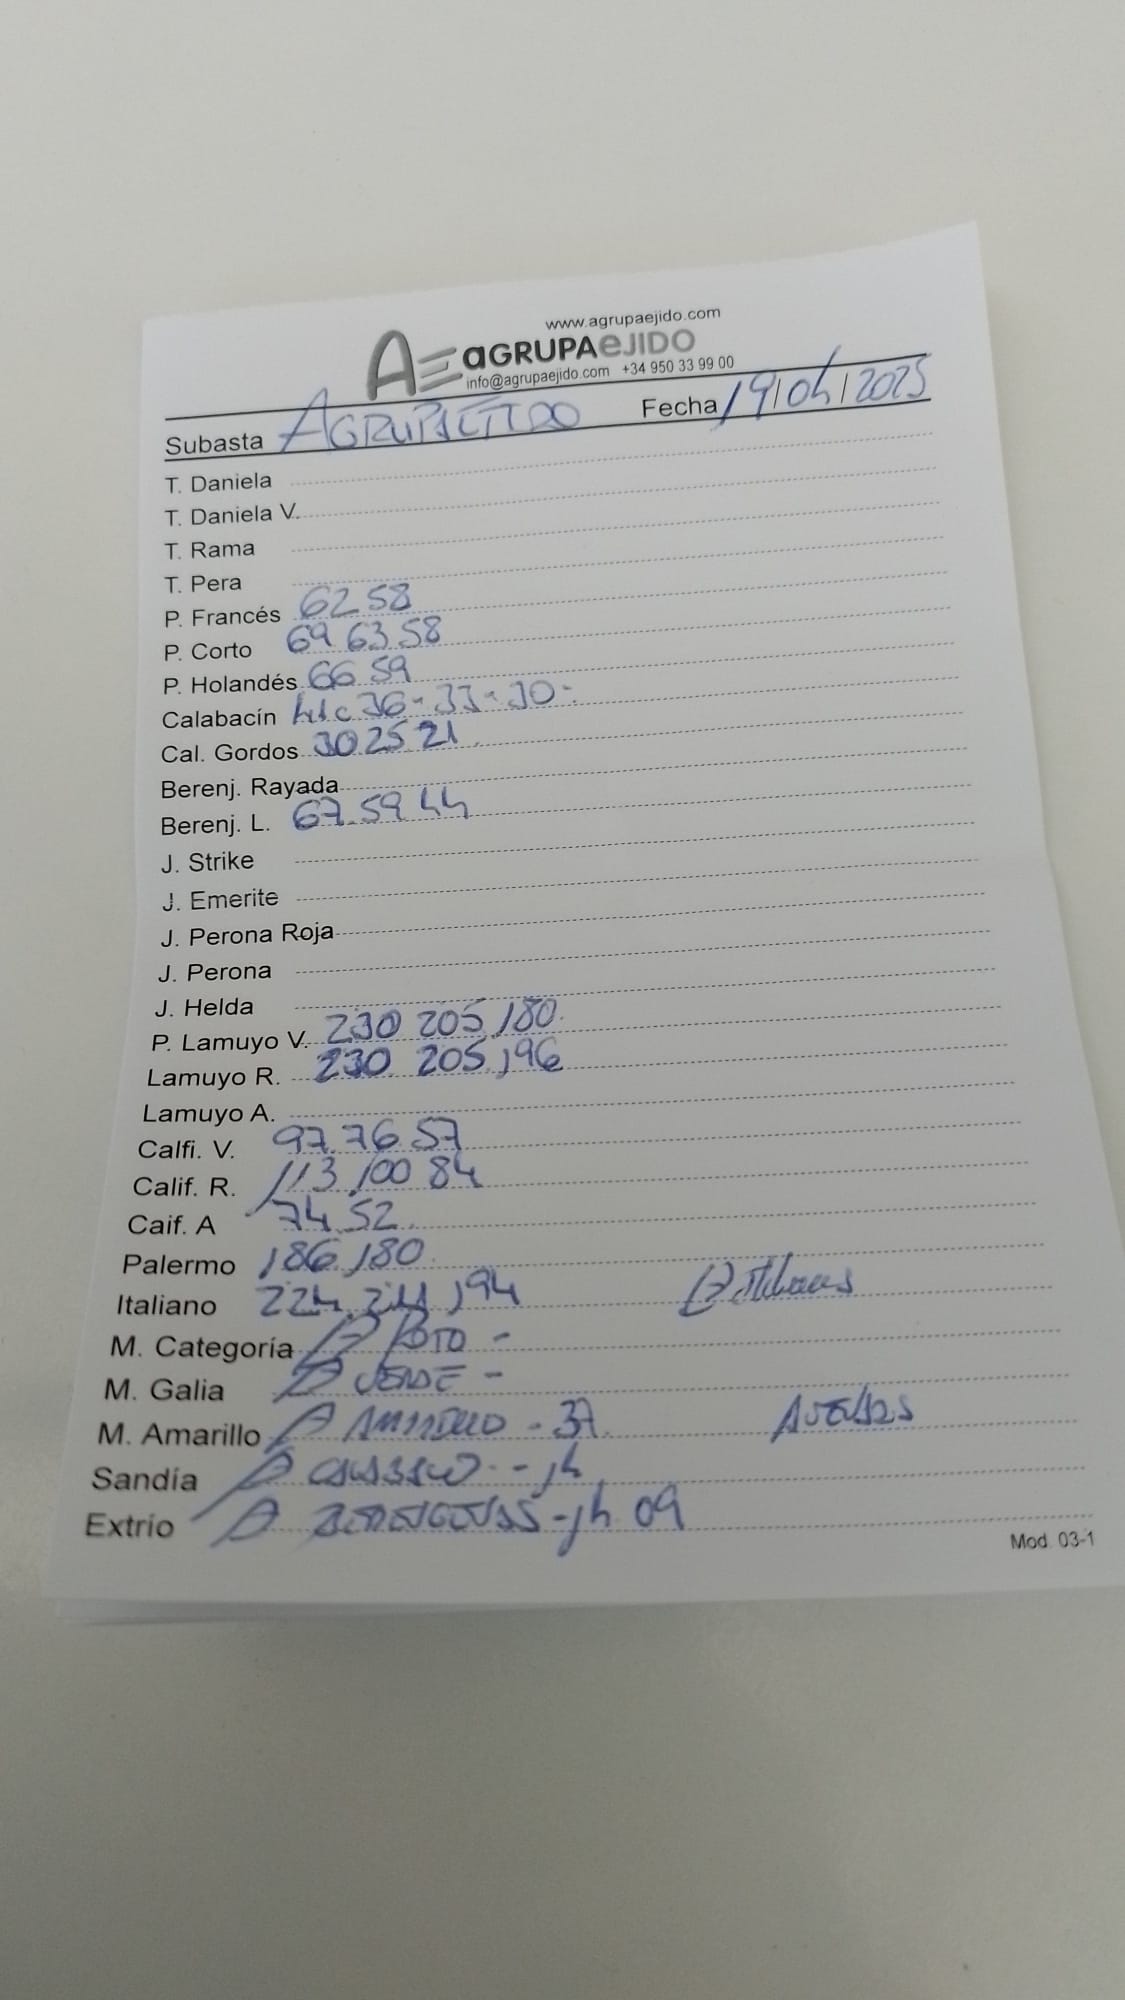 www.agrupaejido.com
AE aGRUPAeJIDO
info@agrupaejido.com +34 950 33 99 00
Subasta AGRUPAEJIDO Fecha 19/04/2025
T. Daniela
T. Daniela V.
T. Rama
T. Pera
P. Francés 62 58
P. Corto 69 63 58
P. Holandés 66 59
Calabacín 36-33-30-
Cal. Gordos 30 25 21
Berenj. Rayada
Berenj. L. 67 59 44
J. Strike
J. Emerite
J. Perona Roja
J. Perona
J. Helda
P. Lamuyo V. 230 205 180
Lamuyo R. 230 205 196
Lamuyo A.
Calfi. V. 97 76 57
Calif. R. 113 100 84
Caif. A 74 52
Palermo 186 180
Italiano 224 211 194
M. Categoría
M. Galia
M. Amarillo - 37
Sandía
Extrio 09
Mod. 03-1